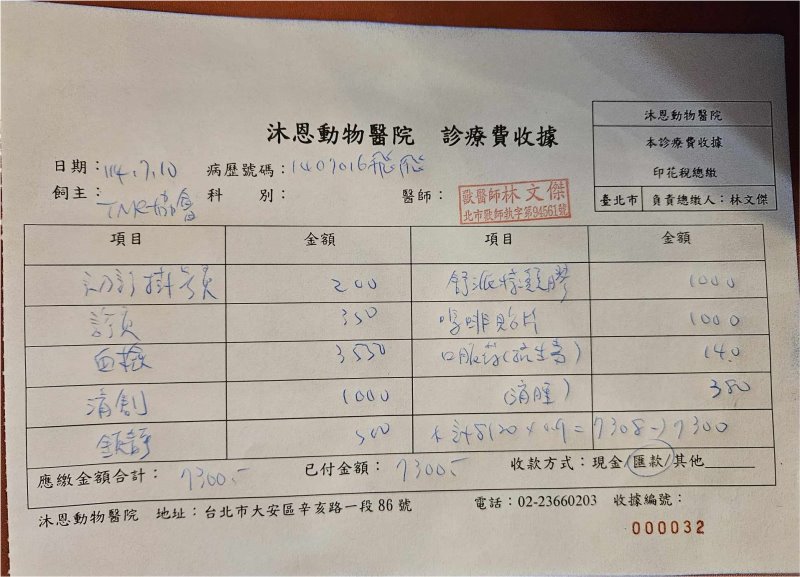 沐恩動物醫院 診療費收據
沐恩動物醫院
本診療費收據
印花稅總繳
臺北市 負責總繳人：林文傑
日期：114.7.10 病歷號碼：1407016飛飛
飼主：TNR協會 科 別： 醫師：
獸醫師林文傑
北市獸師執字第94561號
項目 金額 項目 金額
初診掛號費 200 舒派特凝膠 1000
診費 350 嗎啡貼片 1000
血檢 3550 口服藥(抗生素) 140
清創 1000 (消腫) 380
鎮靜 500 共計8120×0.9=7308→7300
應繳金額合計：7300.- 已付金額：7300.- 收款方式：現金/匯款/其他
沐恩動物醫院 地址：台北市大安區辛亥路一段86號 電話：02-23660203 收據編號：
000032